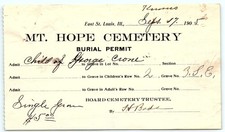 East St. Louis, Ill., Sept. 17, 1905
MT. HOPE CEMETERY
BURIAL PERMIT
Admit Child of George Crone
Admit to Lot No.
Admit to Grave in Children's Row No. 2 3.S.E.
Admit to Grave in Adult's Row No.
Single Grave
BOARD CEMETERY TRUSTEE.
$5.00 By